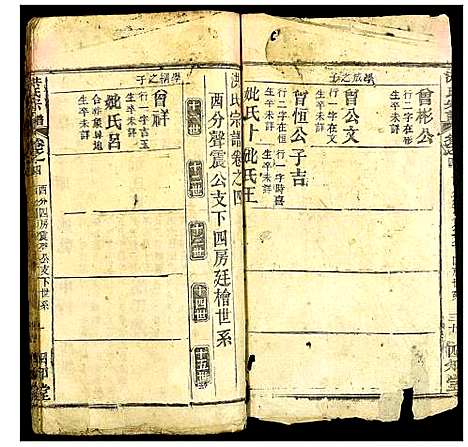 學成之子
曾彬公
行二字在彬
生卒未詳
曾公文
行一字在文
生卒未詳
曾恆公子吉
行一字時喜
行二字在恆
生卒未詳
妣氏卜妣氏王
洪氏宗譜卷之四
酉分聲震公支下四房廷檜世系
十二世
十三世
十四世
十五世
曾祥
行一字吉玉
生卒未詳
妣氏呂
合葬
生卒未詳
洪氏宗譜
卷之四
酉分四房震公支下世系